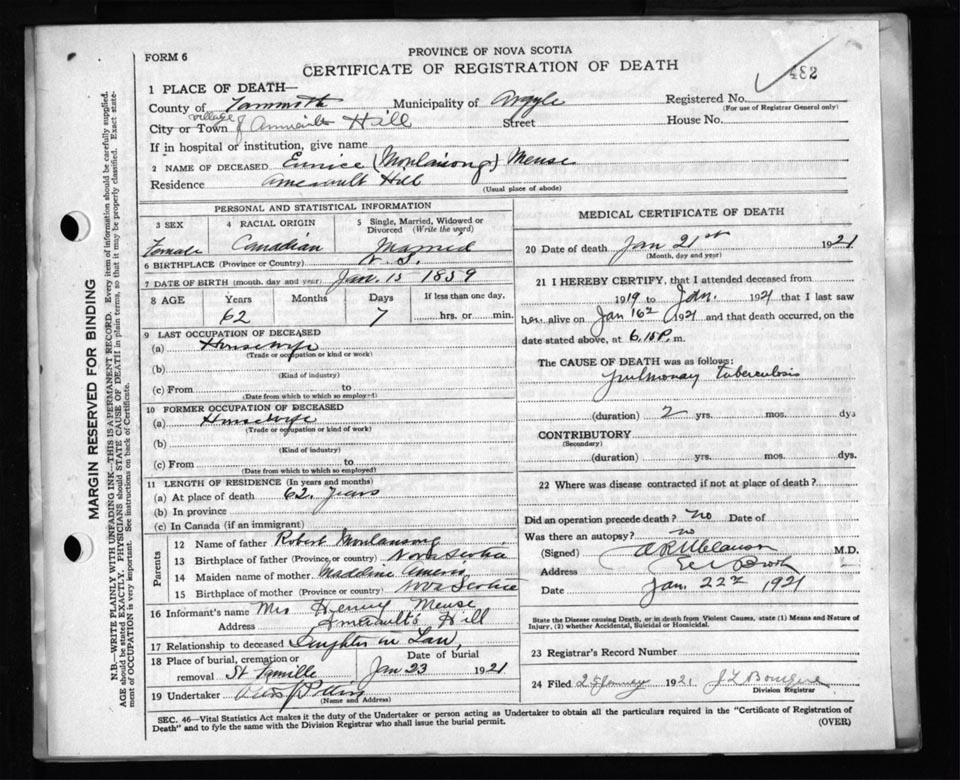 FORM 6
PROVINCE OF NOVA SCOTIA
CERTIFICATE OF REGISTRATION OF DEATH
482
1 PLACE OF DEATH—
County of Yarmouth Municipality of Argyle Registered No.
(For use of Registrar General only)
village of
City or Town Amirault Hill Street House No.
If in hospital or institution, give name
2 NAME OF DECEASED Eunice (Moulaisong) Meuse
Residence Amerault Hill
(Usual place of abode)
PERSONAL AND STATISTICAL INFORMATION
3 SEX 4 RACIAL ORIGIN 5 Single, Married, Widowed or Divorced (Write the word)
Female Canadian Married
6 BIRTHPLACE (Province or Country) N. S.
7 DATE OF BIRTH (month, day and year) Jan. 15 1859
8 AGE Years Months Days If less than one day,
62 7 hrs. or min.
9 LAST OCCUPATION OF DECEASED
(a) Housewife
(Trade or occupation or kind or work)
(b)
(Kind of industry)
(c) From to
(Date from which to which so employed)
10 FORMER OCCUPATION OF DECEASED
(a) Housewife
(Trade or occupation or kind of work)
(b)
(Kind of industry)
(c) From to
(Date from which to which so employed)
11 LENGTH OF RESIDENCE (In years and months)
(a) At place of death 62 Years
(b) In province
(c) In Canada (if an immigrant)
Parents
12 Name of father Robert Moulansong
13 Birthplace of father (Province, or country) Nova Scotia
14 Maiden name of mother
15 Birthplace of mother (Province or country) Nova Scotia
16 Informant's name Mrs Henry Meuse
Address Amirault's Hill
17 Relationship to deceased Daughter in Law,
18 Place of burial, cremation or removal St Famille Date of burial Jan 23 1921
19 Undertaker
(Name and Address)
MEDICAL CERTIFICATE OF DEATH
20 Date of death Jan 21st 1921
(Month, day and year)
21 I HEREBY CERTIFY, that I attended deceased from
1919 to Jan. 1921 that I last saw
her alive on Jan 16 1921 and that death occurred, on the
date stated above, at 6.15 P. m.
The CAUSE OF DEATH was as follows:
pulmonary tuberculosis
(duration) 2 yrs. mos. dys
CONTRIBUTORY
(Secondary)
(duration) yrs. mos. dys.
22 Where was disease contracted if not at place of death?
Did an operation precede death? no Date of
Was there an autopsy? no
(Signed) M.D.
Address Eel Brook
Date Jan. 22nd 1921
State the Disease causing Death, or in death from Violent Causes, state (1) Means and Nature of Injury, (2) whether Accidental, Suicidal or Homicidal.
23 Registrar's Record Number
24 Filed 1921
Division Registrar
SEC. 46—Vital Statistics Act makes it the duty of the Undertaker or person acting as Undertaker to obtain all the particulars required in the "Certificate of Registration of
Death" and to fyle the same with the Division Registrar who shall issue the burial permit.
(OVER)
MARGIN RESERVED FOR BINDING
N.B.—WRITE PLAINLY WITH UNFADING INK—THIS IS A PERMANENT RECORD. Every item of information should be carefully supplied.
AGE should be stated EXACTLY. PHYSICIANS should STATE CAUSE OF DEATH in plain terms, so that it may be properly classified. Exact statement of OCCUPATION is very important. See instructions on back of Certificate.